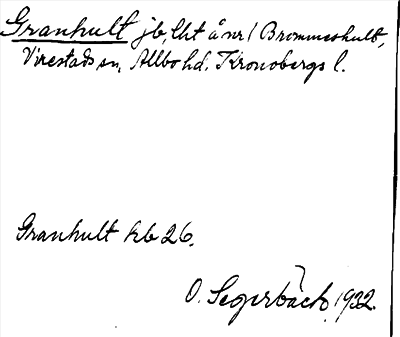 Granhult jb, lht å nr 1 Brommeshult,
Virestads sn, Allbo hd. Kronobergs l.
Granhult kb 26.
O. Segerbäck. 1932.